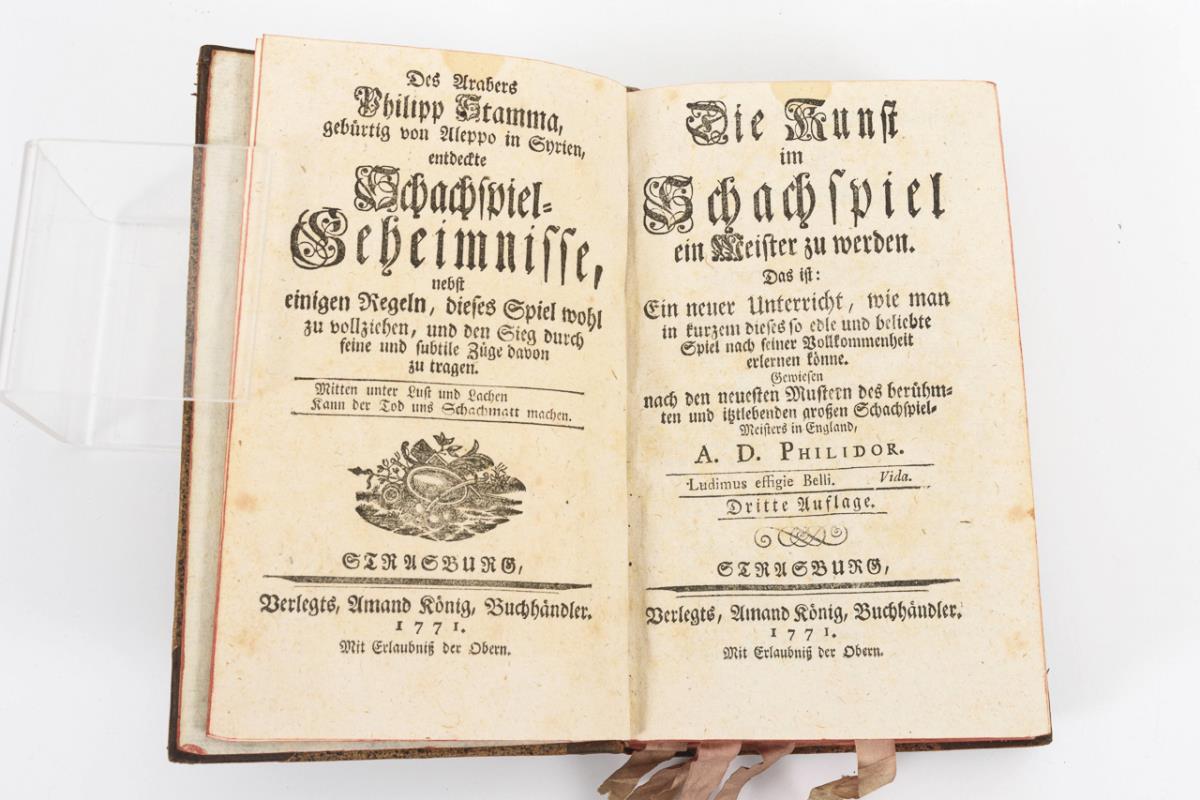 Des Arabers
Philipp Stamma,
gebürtig von Aleppo in Syrien,
entdeckte
Schachspiel-
Geheimnisse,
nebst
einigen Regeln, dieses Spiel wohl
zu vollziehen, und den Sieg durch
feine und subtile Züge davon
zu tragen.
Mitten unter Lust und Lachen
Kann der Tod uns Schachmatt machen.
STRASBURG,
Verlegts, Amand König, Buchhändler.
1771.
Mit Erlaubniß der Obern.
Die Kunst
im
Schachspiel
ein Meister zu werden.
Das ist:
Ein neuer Unterricht, wie man
in kurzem dieses so edle und beliebte
Spiel nach seiner Vollkommenheit
erlernen könne.
Gewiesen
nach den neuesten Mustern des berühm-
ten und itztlebenden großen Schachspiel-
Meisters in England,
A. D. PHILIDOR.
Ludimus effigie Belli. Vida.
Dritte Auflage.
STRASBURG,
Verlegts, Amand König, Buchhändler.
1771.
Mit Erlaubniß der Obern.